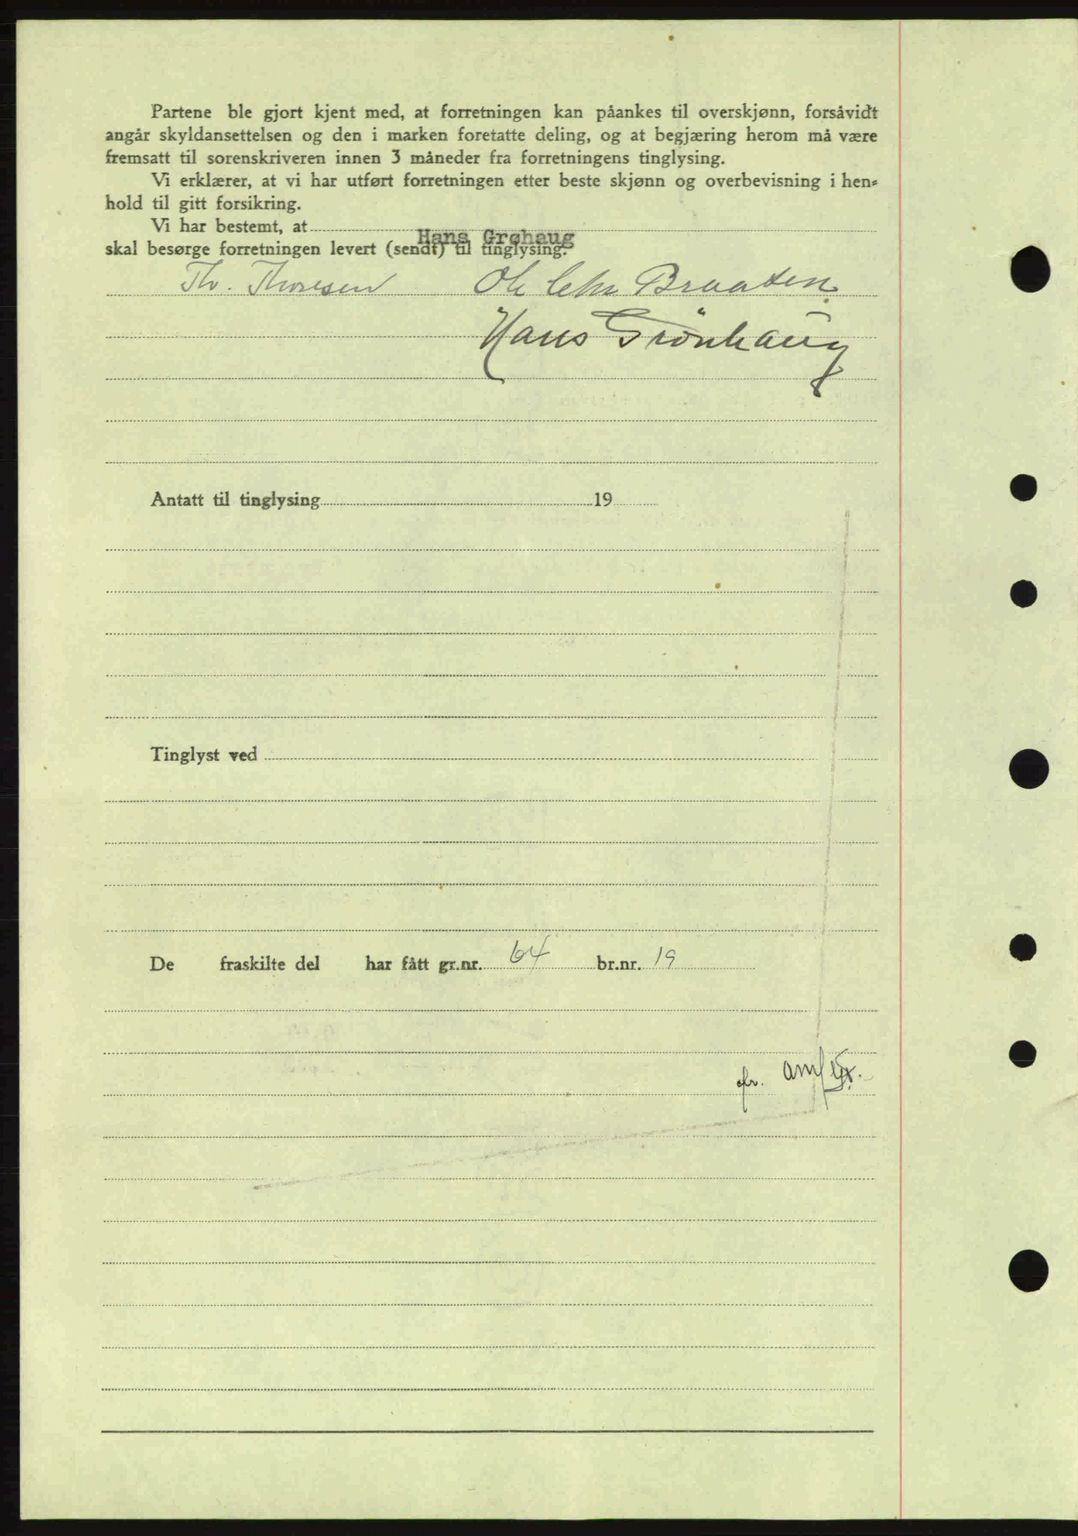 Partene ble gjort kjent med, at forretningen kan påankes til overskjønn, forsåvidt
angår skyldansettelsen og den i marken foretatte deling, og at begjæring herom må være
fremsatt til sorenskriveren innen 3 måneder fra forretningens tinglysing.
Vi erklærer, at vi har utført forretningen etter beste skjønn og overbevisning i hen-
hold til gitt forsikring.
Vi har bestemt, at
Hans Grøhaug
skal besørge forretningen levert (sendt) til tinglysing.
Th. Thoresen Ole Chr Braaten
Hans Grönhaug
Antatt til tinglysing 19
Tinglyst ved
De fraskilte del har fått gr.nr. 64 br.nr. 19